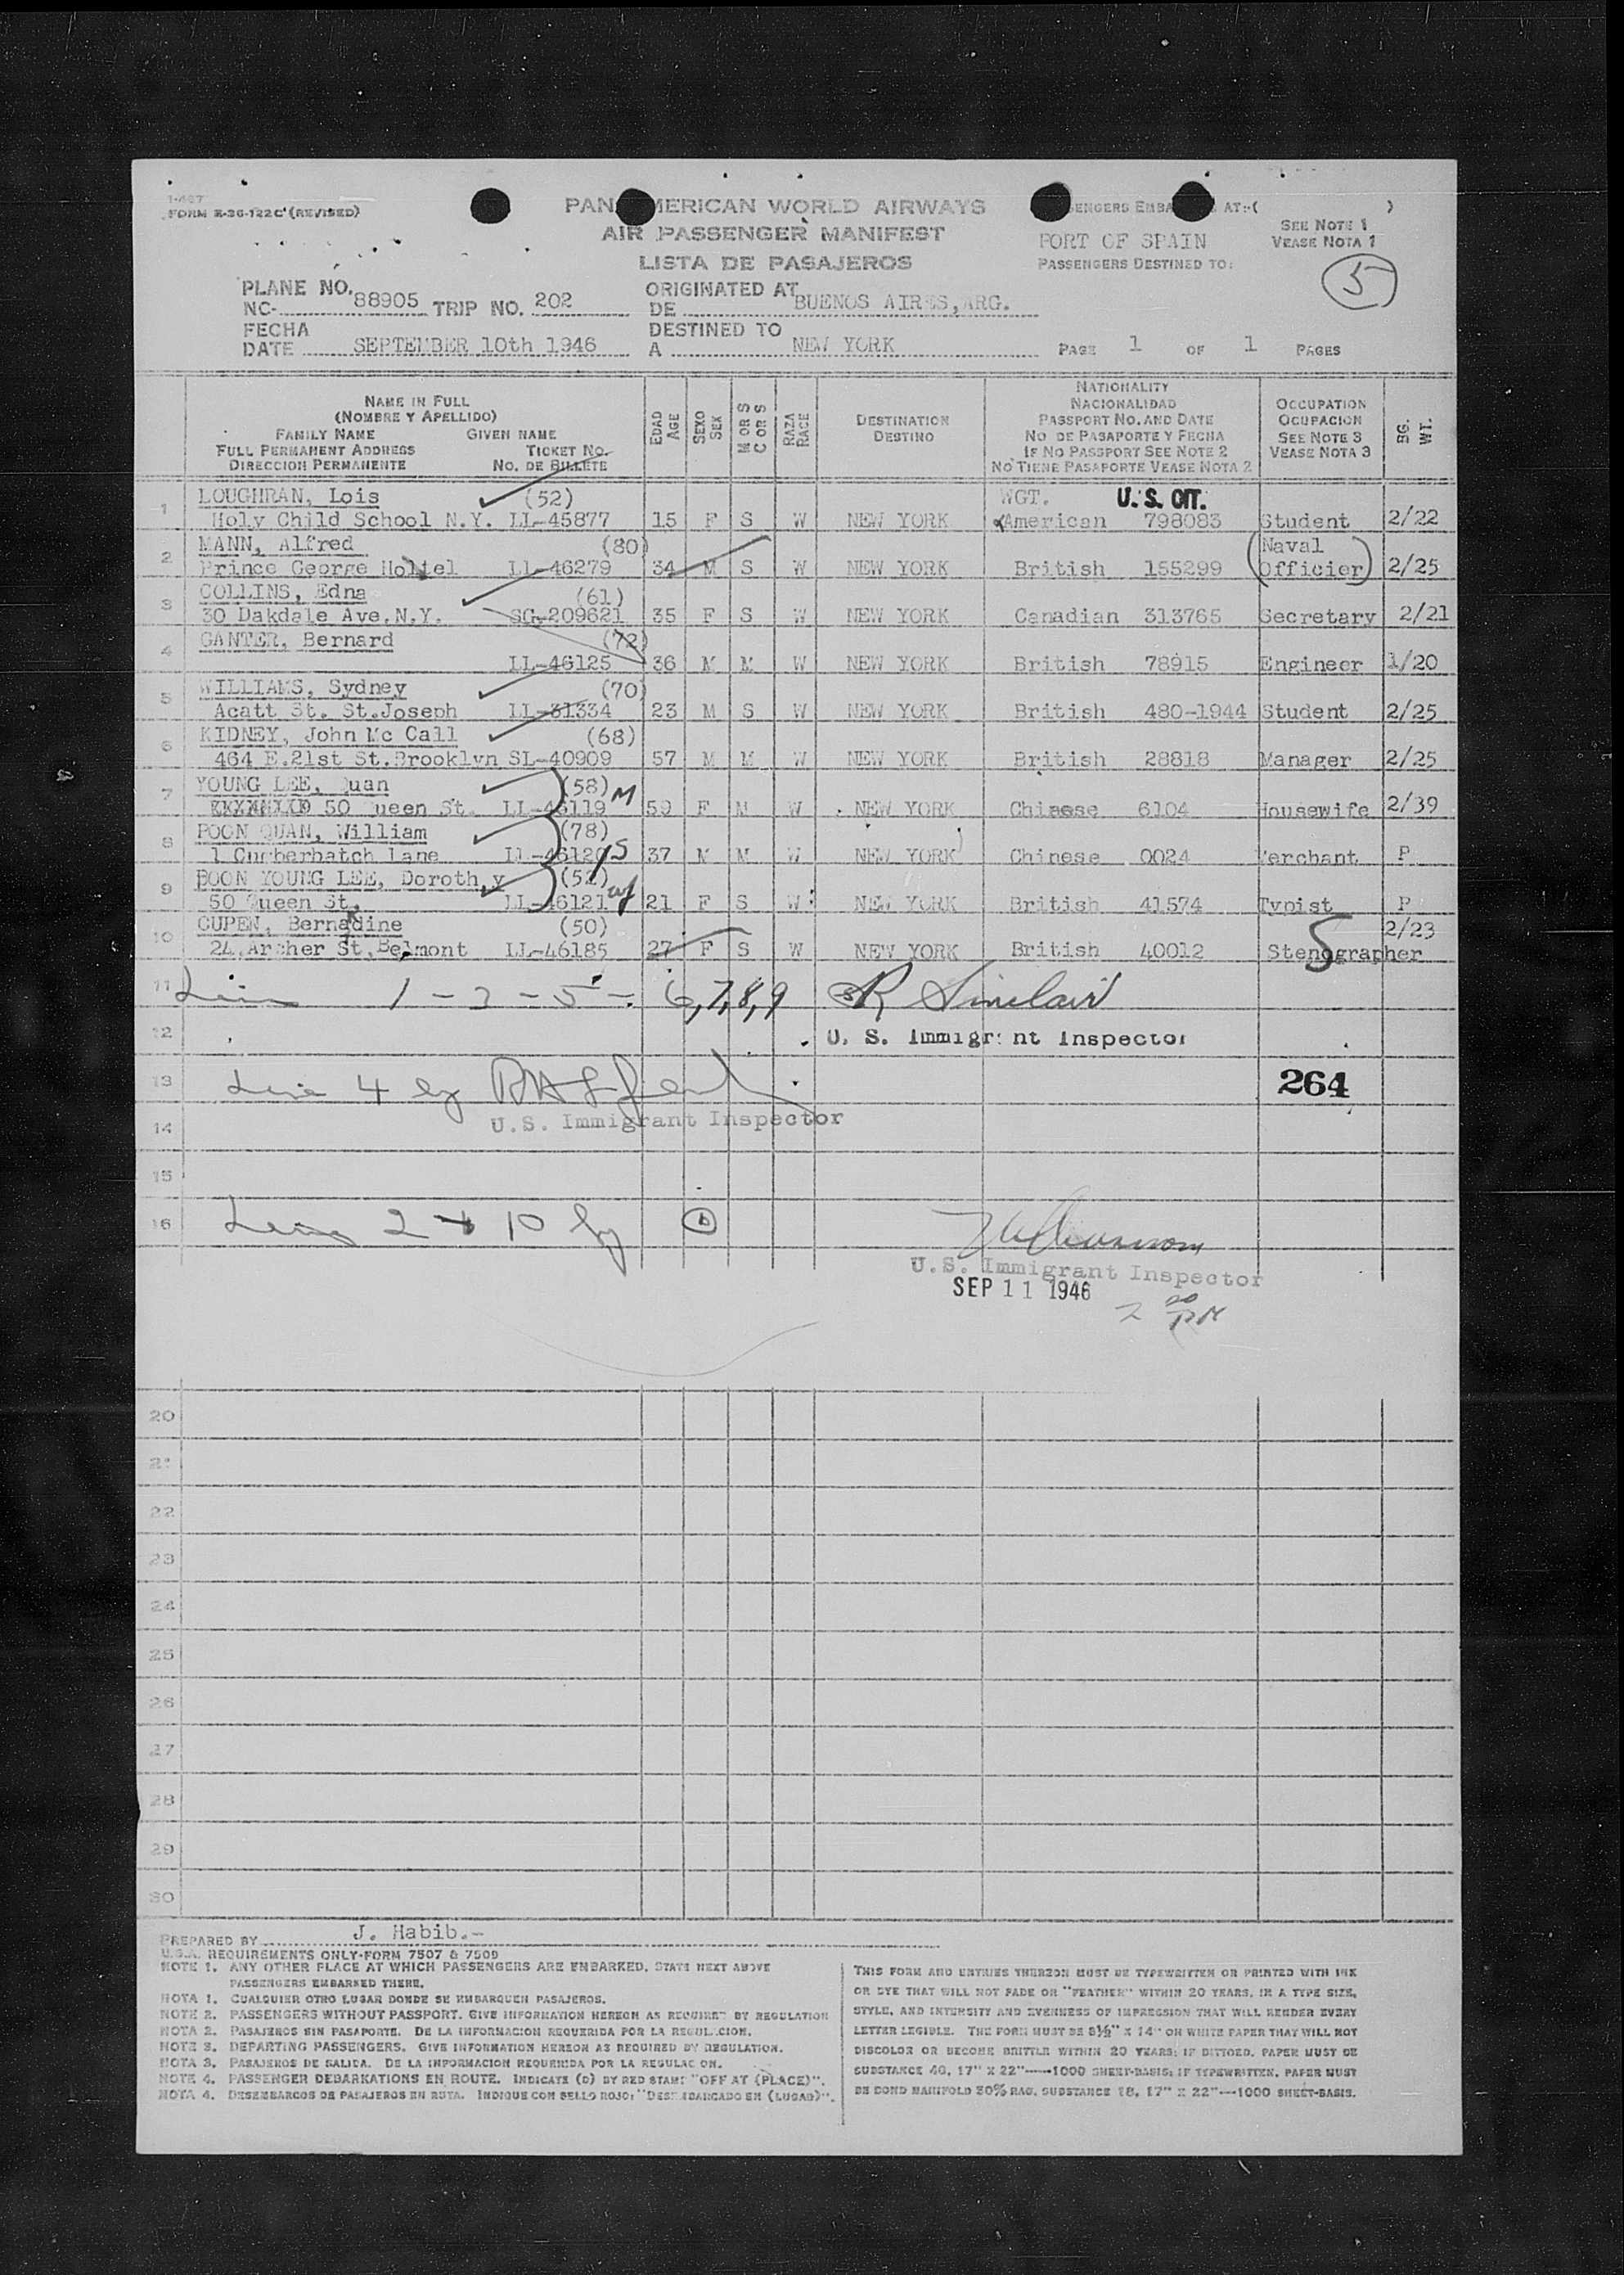 I-467
FORM E-36-122C (REVISED)
PAN AMERICAN WORLD AIRWAYS
AIR PASSENGER MANIFEST
LISTA DE PASAJEROS
AT:-( )
PORT OF SPAIN
PASSENGERS DESTINED TO:
SEE NOTE 1
VEASE NOTA 1
5
PLANE NO.
NC- 88905 TRIP NO. 202
ORIGINATED AT
DE BUENOS AIRES, ARG.
FECHA
DATE SEPTEMBER 10th 1946
DESTINED TO
A NEW YORK
PAGE 1 OF 1 PAGES
NAME IN FULL
(NOMBRE Y APELLIDO)
FAMILY NAME GIVEN NAME
FULL PERMANENT ADDRESS TICKET NO.
DIRECCION PERMANENTE NO. DE BILLETE
EDAD AGE
SEXO SEX
M OR S C OR S
RAZA RACE
DESTINATION
DESTINO
NATIONALITY
NACIONALIDAD
PASSPORT NO. AND DATE
NO. DE PASAPORTE Y FECHA
IF NO PASSPORT SEE NOTE 2
NO TIENE PASAPORTE VEASE NOTA 2
OCCUPATION
OCUPACION
SEE NOTE 3
VEASE NOTA 3
BG. WT.
1 LOUGHRAN, Lois (52) WGT. U.S. CIT.
Holy Child School N.Y. LL-45877 15 F S W NEW YORK American 798083 Student 2/22
2 MANN, Alfred (80) Naval
Prince George Hotel LL-46279 34 M S W NEW YORK British 155299 Officier 2/25
3 COLLINS, Edna (61)
30 Dakdale Ave.N.Y. SG-209621 35 F S W NEW YORK Canadian 313765 Secretary 2/21
4 GANTER, Bernard (72)
LL-46125 36 M M W NEW YORK British 78915 Engineer 1/20
5 WILLIAMS, Sydney (70)
Acatt St. St.Joseph LL-31334 23 M S W NEW YORK British 480-1944 Student 2/25
6 KIDNEY, John Mc Call (68)
464 E.21st St.Brooklyn SL-40909 57 M M W NEW YORK British 28818 Manager 2/25
7 YOUNG LEE, Quan (58) M
50 Queen St. LL-46119 59 F M W NEW YORK Chinese 6104 Housewife 2/39
8 POON QUAN, William (78)
1 Cumberbatch Lane LL-46120 S 37 M M W NEW YORK Chinese 0024 Merchant P
9 POON YOUNG LEE, Dorothy (52)
50 Queen St. LL-46121 wf 21 F S W NEW YORK British 41574 Typist P
10 CUPEN, Bernadine (50) 2/23
24 Archer St.Belmont LL-46185 27 F S W NEW YORK British 40012 Stenographer
5
11 Line 1 - 3 - 5 - 6,7,8,9 R Sinclair
12 U. S. Immigrant Inspector
13 Line 4 by 264
14 U.S. Immigrant Inspector
15
16 Lines 2 + 10 by
U.S. Immigrant Inspector
SEP 11 1946
2 20 PM
20
21
22
23
24
25
26
27
28
29
30
PREPARED BY J. Habib.-
U.S.A. REQUIREMENTS ONLY-FORM 7507 & 7509
NOTE 1. ANY OTHER PLACE AT WHICH PASSENGERS ARE EMBARKED, STATE NEXT ABOVE
PASSENGERS EMBARKED THERE.
NOTA 1. CUALQUIER OTRO LUGAR DONDE SE EMBARQUEN PASAJEROS.
NOTE 2. PASSENGERS WITHOUT PASSPORT. GIVE INFORMATION HEREON AS REQUIRED BY REGULATION
NOTA 2. PASAJEROS SIN PASAPORTE. DE LA INFORMACION REQUERIDA POR LA REGULACION.
NOTE 3. DEPARTING PASSENGERS. GIVE INFORMATION HEREON AS REQUIRED BY REGULATION.
NOTA 3. PASAJEROS DE SALIDA. DE LA INFORMACION REQUERIDA POR LA REGULACION.
NOTE 4. PASSENGER DEBARKATIONS EN ROUTE. INDICATE (D) BY RED STAMP "OFF AT (PLACE)".
NOTA 4. DESEMBARCOS DE PASAJEROS EN RUTA. INDIQUE CON SELLO ROJO: "DESEMBARCADO EN (LUGAR)".
THIS FORM AND ENTRIES THEREON MUST BE TYPEWRITTEN OR PRINTED WITH INK
OR DYE THAT WILL NOT FADE OR "FEATHER" WITHIN 20 YEARS, IN A TYPE SIZE,
STYLE, AND INTENSITY AND EVENNESS OF IMPRESSION THAT WILL RENDER EVERY
LETTER LEGIBLE. THE FORM MUST BE 8½" X 14" ON WHITE PAPER THAT WILL NOT
DISCOLOR OR BECOME BRITTLE WITHIN 20 YEARS; IF DITTOED, PAPER MUST BE
SUBSTANCE 40, 17" X 22"-----1000 SHEET-BASIS; IF TYPEWRITTEN, PAPER MUST
BE BOND MANIFOLD 50% RAG, SUBSTANCE 18, 17" X 22"---1000 SHEET-BASIS.